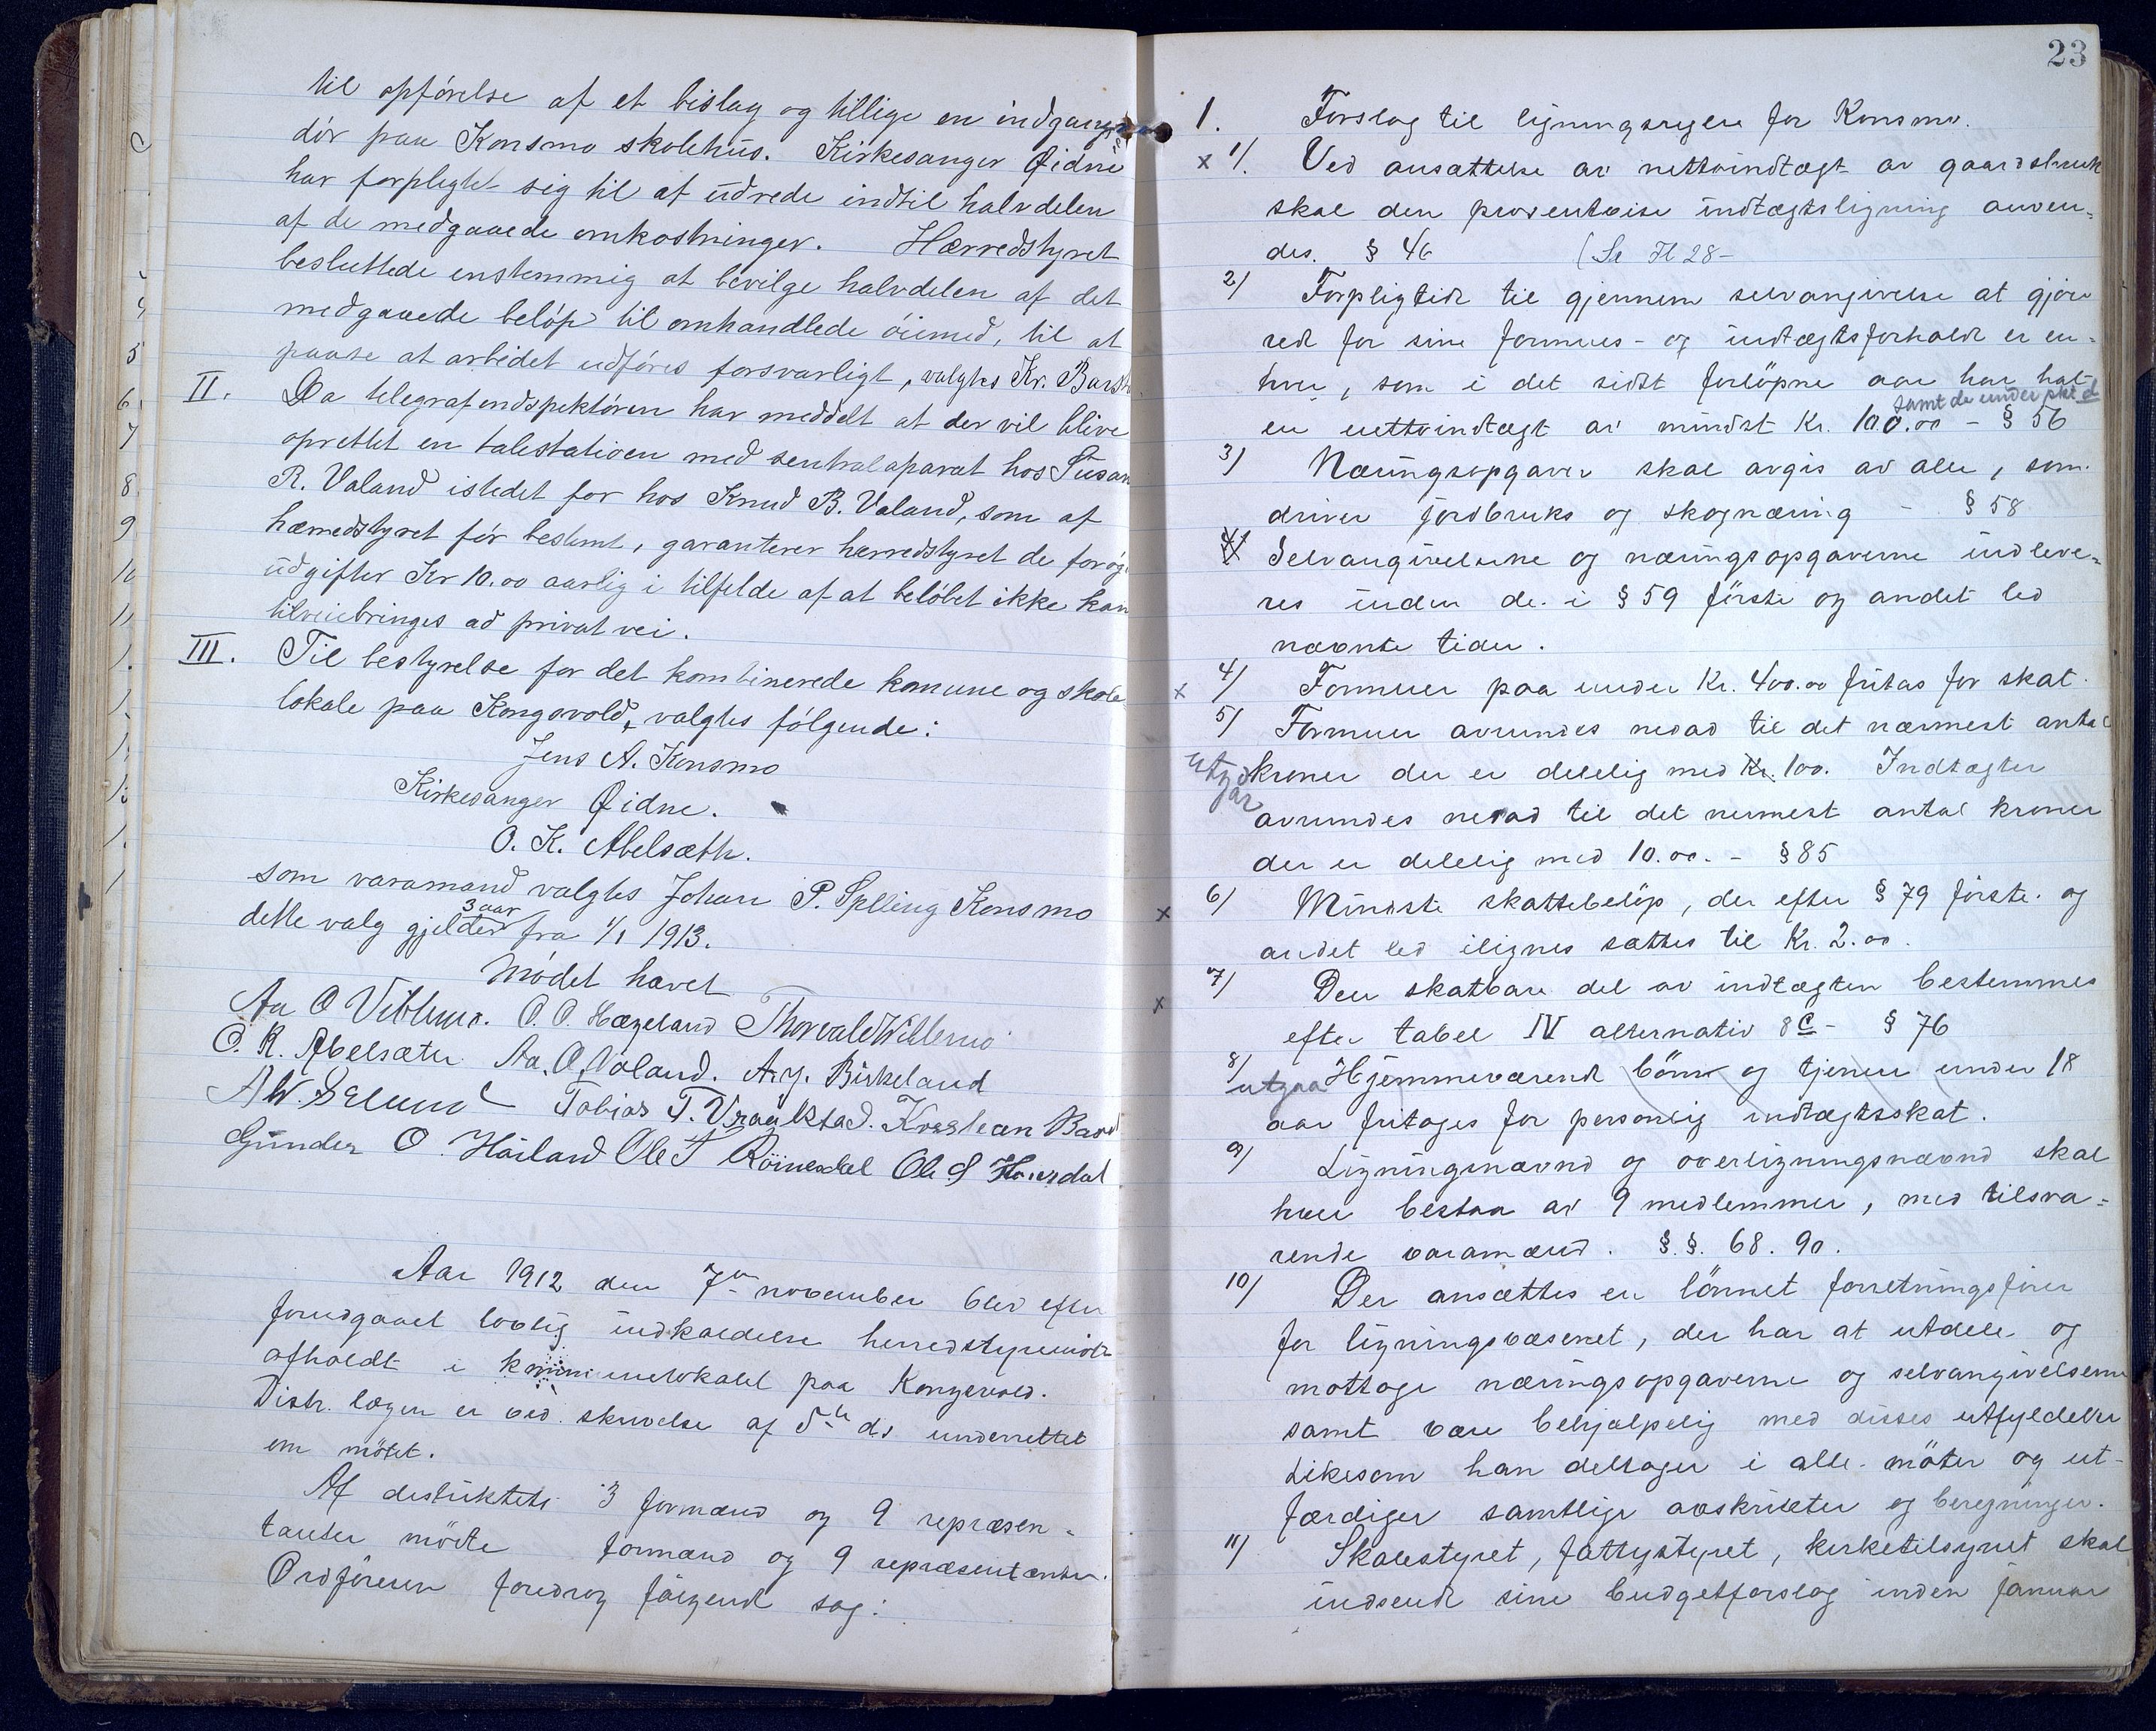 til opførelse af et bislag og tillige en indgangs
dør paa Konsmo skolehus. Kirkesanger Øidne
har forpligtet sig til at udrede indtil halvdelen
af de medgaaede omkostninger. Hærredstyret
besluttede enstemmig at bevilge halvdelen af det
medgaaede beløp til omhandlede øiemed, til at
paase at arbeidet udføres forsvarligt, valgtes Kr.
II. Da telegrafindspektøren har meddelt at der vil blive
oprettet en talestation med sentralaparat hos Susan
R. Valand istedet for hos Knud B. Valand, som af
hærredstyret før bestemt, garanterer herredstyret de forøg
udgifter Kr 10.00 aarlig i tilfelde af at beløbet ikke kan
tilveiebringes ad privat vei.
III. Til bestyrelse for det kombinerede komune og skole
lokale paa Kongsvold, valgtes følgende:
Jens A. Konsmo
Kirkesanger Øidne.
O. K. Abelsæth.
som varamand valgtes Johan P. Spilling Konsmo
3 aar
dette valg gjelder fra 1/1 1913.
Mødet hævet
Aa O Viblemo. O. O. Hægeland Thorvald Viblemo
O. K. Abelsæter Aa. O. Valand. A. J. Birkeland
A W. Selund Tobias T. Vraalstad. Kristean
Gunder O. Håiland Ole T Röinesdal Ole S
Aar 1912 den 7de november blev efter
forudgaaet lovlig indkaldelse herredstyremöte
afholdt i kommunelokalet paa Kongsvold.
Distr. lægen er ved skrivelse af 5te ds underrettet
om mötet.
Af destriktets 3 formænd og 9 repræsen=
tanter mödte formænd og 9 repræsentanter.
Ordföreren foredrog fölgende sag:
23
1. Forslag til ligningsregler for Konsmo.
x 1/. Ved ansættelse av nettoindtægt av gaardsbruk
skal den prosentvise indtægtsligning anven=
des. § 46 (Se Fl 28-
2/ Forpligtet til gjennem selvangivelse at gjöre
rede for sine formues- og indtægtsforhold er en=
hver, som i det sidst forlöpne aar har hat
samt de under pkt d
en nettoindtægt av mindst Kr. 100.00 - § 56
3/ Næringsopgaver skal avgis av alle, som
driver jordbruks og skognæring - § 58
4/ Selvangivelserne og næringsopgaverne indleve=
res inden de i § 59 förste og andet led
nævnte tider.
x 4/ Formuer paa under Kr. 400.00 fritas for skat.
5/ Formuer avrundes nedad til det nærmest antal
utgaar kroner der er delelig med Kr. 100. Indtægter
avrundes nedad til det nermest antal kroner
der er delelig med 10.00. - § 85
x 6/ Mindste skattebelöp, der efter § 79 förste og
andet led ilignes sættes til Kr. 2.00.
x 7/ Den skatbare del av indtægten bestemmes
efter tabel IV alternativ 8 c - § 76
8/ utgaa Hjemmeværende börn og tjenere under 18
aar fritages for personlig indtægtsskat.
9/ Ligningsnævnd og overligningsnævnd skal
hver bestaa av 9 medlemmer, med tilsva=
rende varamænd. §.§. 68. 90.
10/ Der ansættes en lönnet forretningsförer
for ligningsvæsenet, der har at utdele og
mottage næringsopgaverne og selvangivelserne
samt være behjælpelig med disses utfyldelse
Likesom han deltager i alle möter og ut-
færdiger samtlige avskrifter og beregninger.
11/ Skolestyret, fattigstyret, kirketilsynet skal
indsende sine budgetforslag inden januar